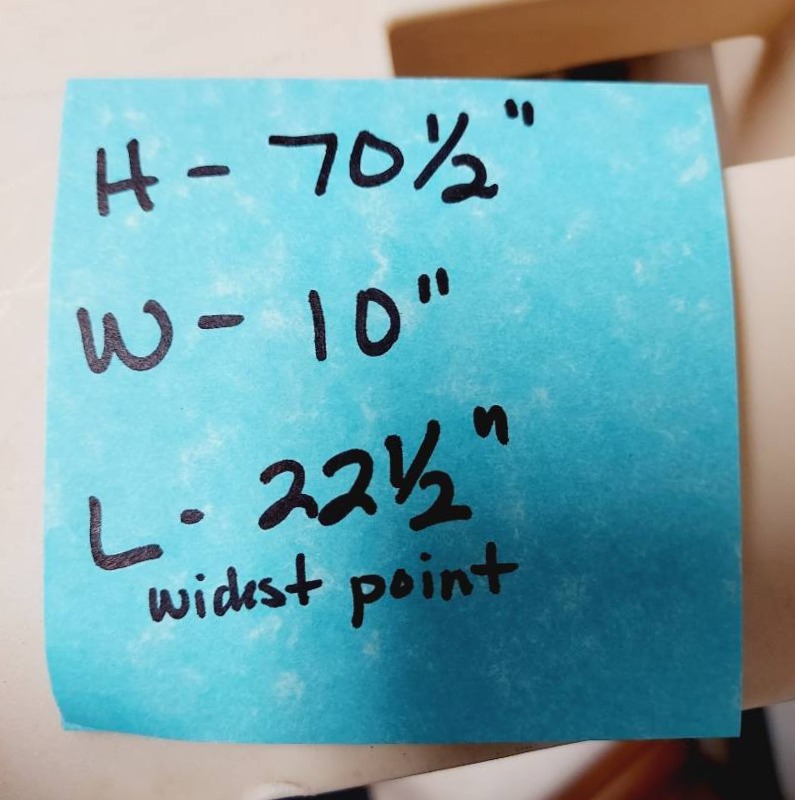 H - 70 1/2"
W - 10"
L - 22 1/2"
widest point